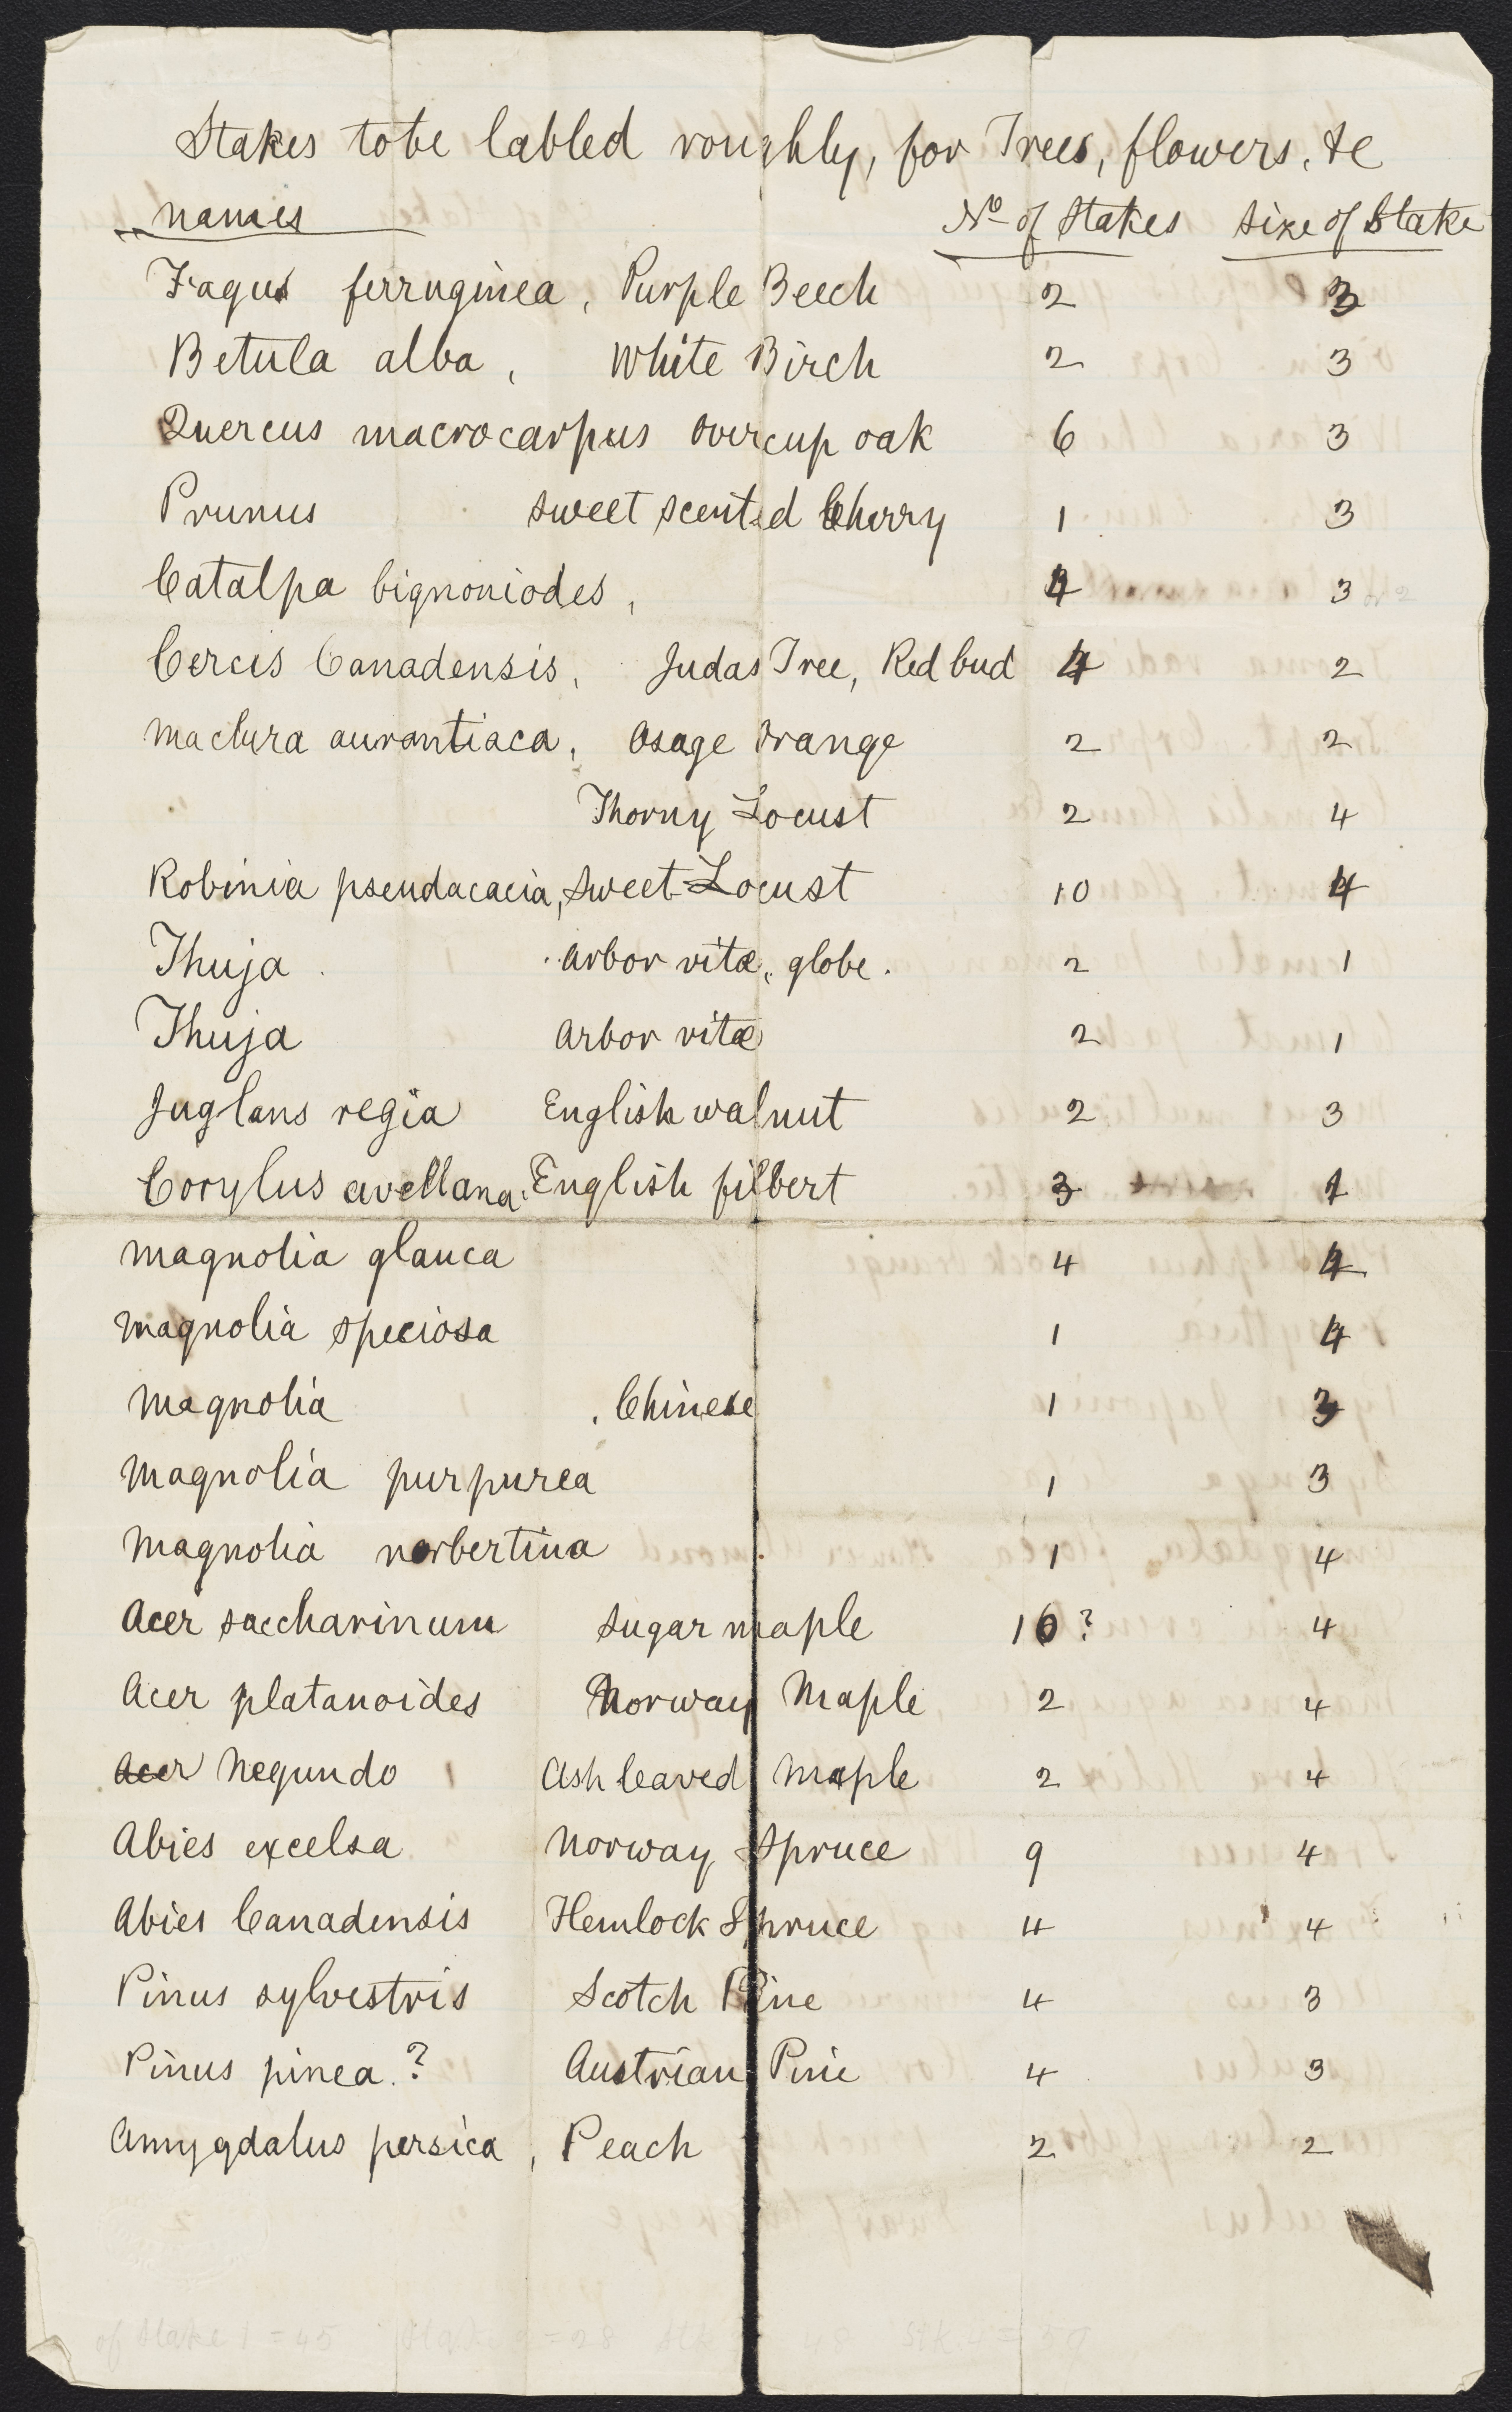 Stakes to be labled roughly, for Trees, flowers, &c
names No of Stakes Size of Stake
Fagus ferruginea, Purple Beech 2 3
Betula alba, White Birch 2 3
Quercus macrocarpus overcup oak 6 3
Prunus sweet scented Cherry 1 3
Catalpa bignoniodes, 4 3 or 2
Cercis Canadensis, Judas Tree, Red bud 4 2
Maclura aurantiaca, Osage Orange 2 2
Thorny Locust 2 4
Robinia pseudacacia, Sweet Locust 10 4
Thuja arbor vitæ, globe. 2 1
Thuja arbor vitæ 2 1
Juglans regia English walnut 2 3
Corylus avellana, English filbert 3 1
Magnolia glauca 4 4
Magnolia speciosa 1 4
Magnolia , Chinese 1 3
Magnolia purpurea 1 3
Magnolia norbertina 1 4
Acer saccharinum Sugar maple 10? 4
Acer platanoides Norway Maple 2 4
Acer Negundo Ash leaved Maple 2 4
Abies excelsa Norway Spruce 9 4
Abies Canadensis Hemlock Spruce 4 4
Pinus sylvestris Scotch Pine 4 3
Pinus pinea.? Austrian Pine 4 3
Amygdalus persica, Peach 2 2
of Stake 1 = 45 = 28 48